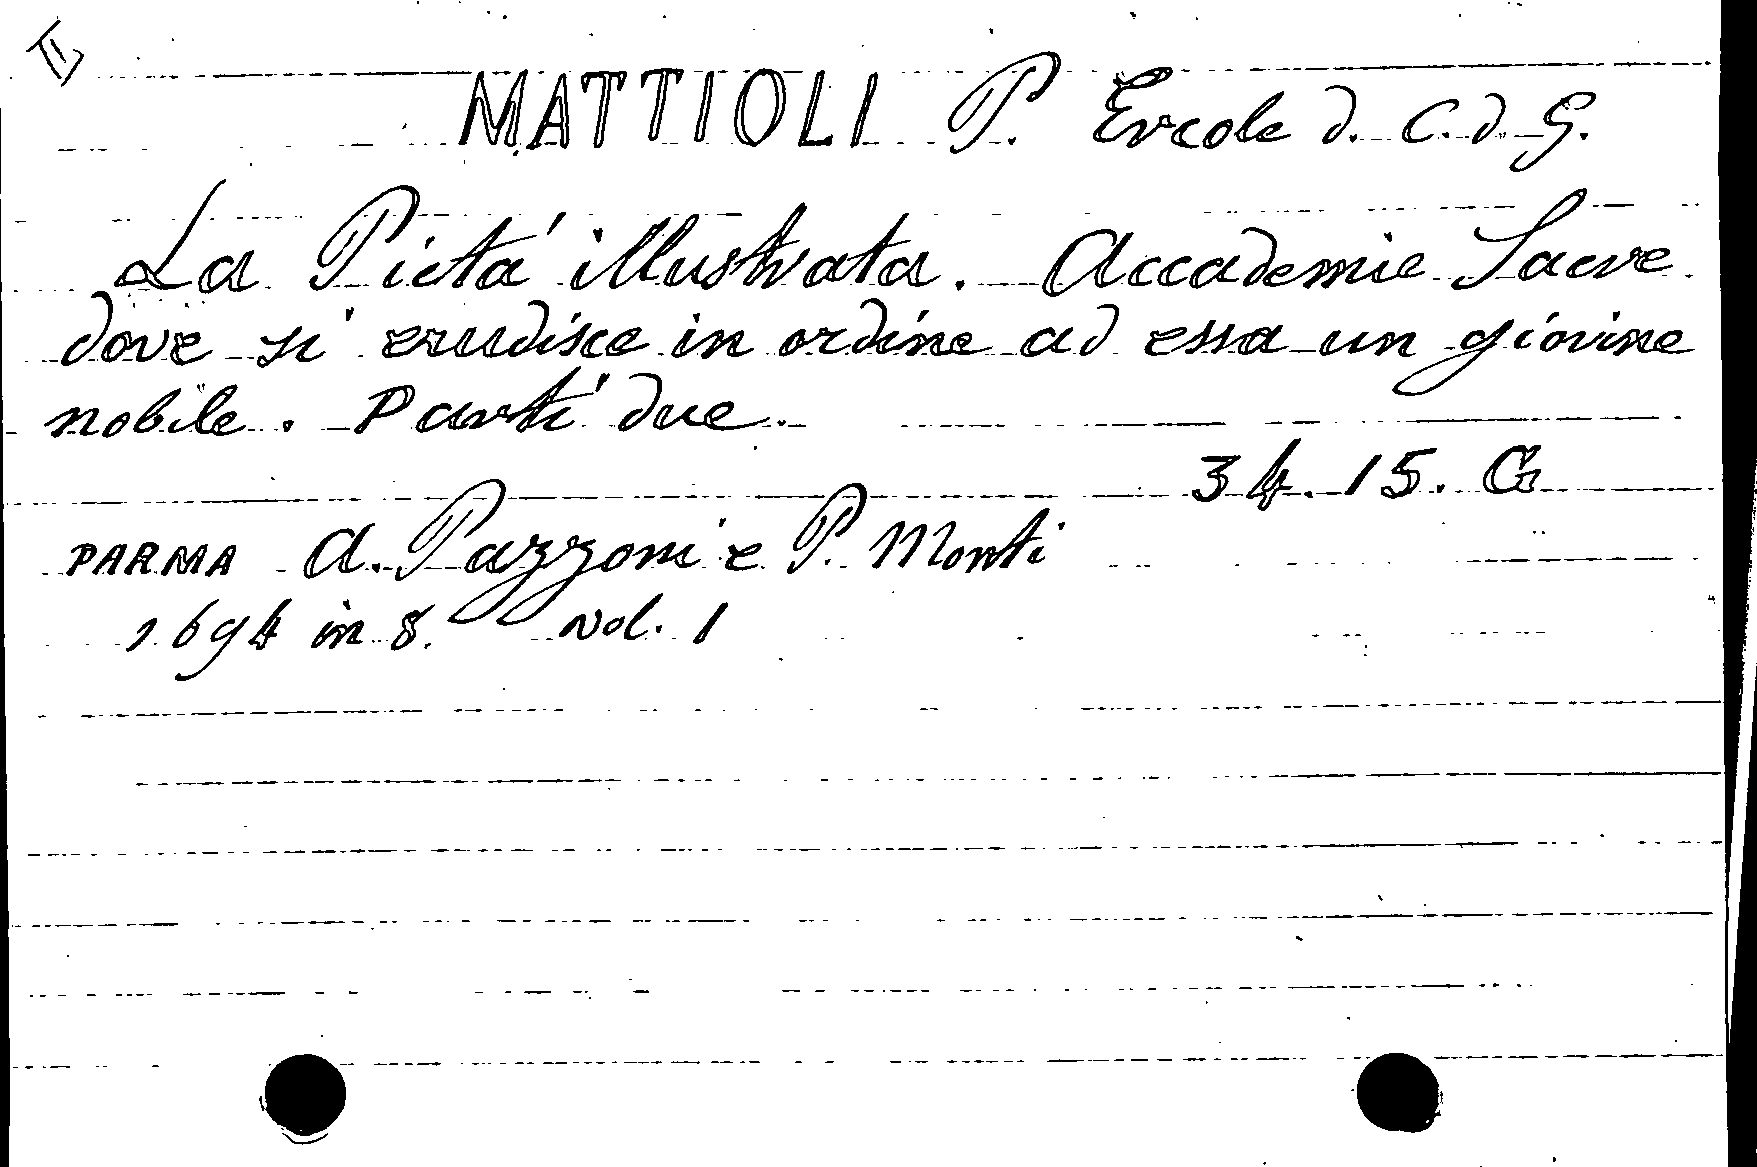 II
MATTIOLI P. Ercole d. C. d. G.
La Pietá illustrata. Accademie Sacre
dove si erudisce in ordine ad essa un giovine
nobile. Parti due.
34.15.G
PARMA A. Pazzoni e P. Monti
1694 in 8. vol. 1